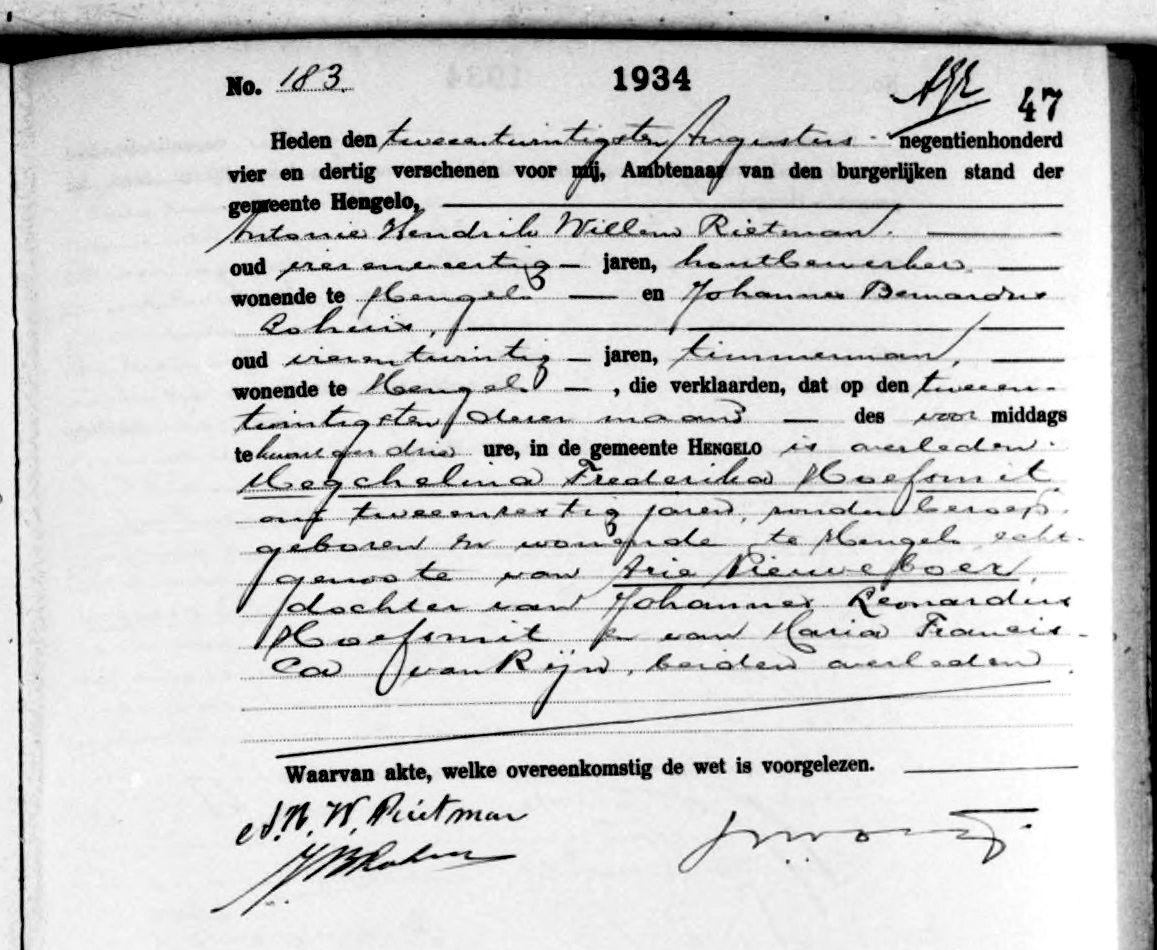 No. 183. 1934 47
Heden den tweeentwintigsten Augustus negentienhonderd
vier en dertig verschenen voor mij, Ambtenaar van den burgerlijken stand der
gemeente Hengelo,
Antonie Hendrik Willem Rietman.
oud vierenveertig jaren, houtbewerker,
wonende te Hengelo en Johannes Bernardus
oud vierentwintig jaren, timmerman,
wonende te Hengelo, die verklaarden, dat op den tweeen-
twintigsten dezer maand des voor middags
te kwart over drie ure, in de gemeente HENGELO is overleden
Mechelina Frederika Hoefsmit,
oud tweeenzestig jaren, zonder beroep,
geboren en wonende te Hengelo, echt-
genoote van Arie Nieuweboer,
dochter van Johannes Leonardus
Hoefsmit en van Maria Francis-
ca van Rijn, beiden overleden.
Waarvan akte, welke overeenkomstig de wet is voorgelezen.
A. H. W. Rietman